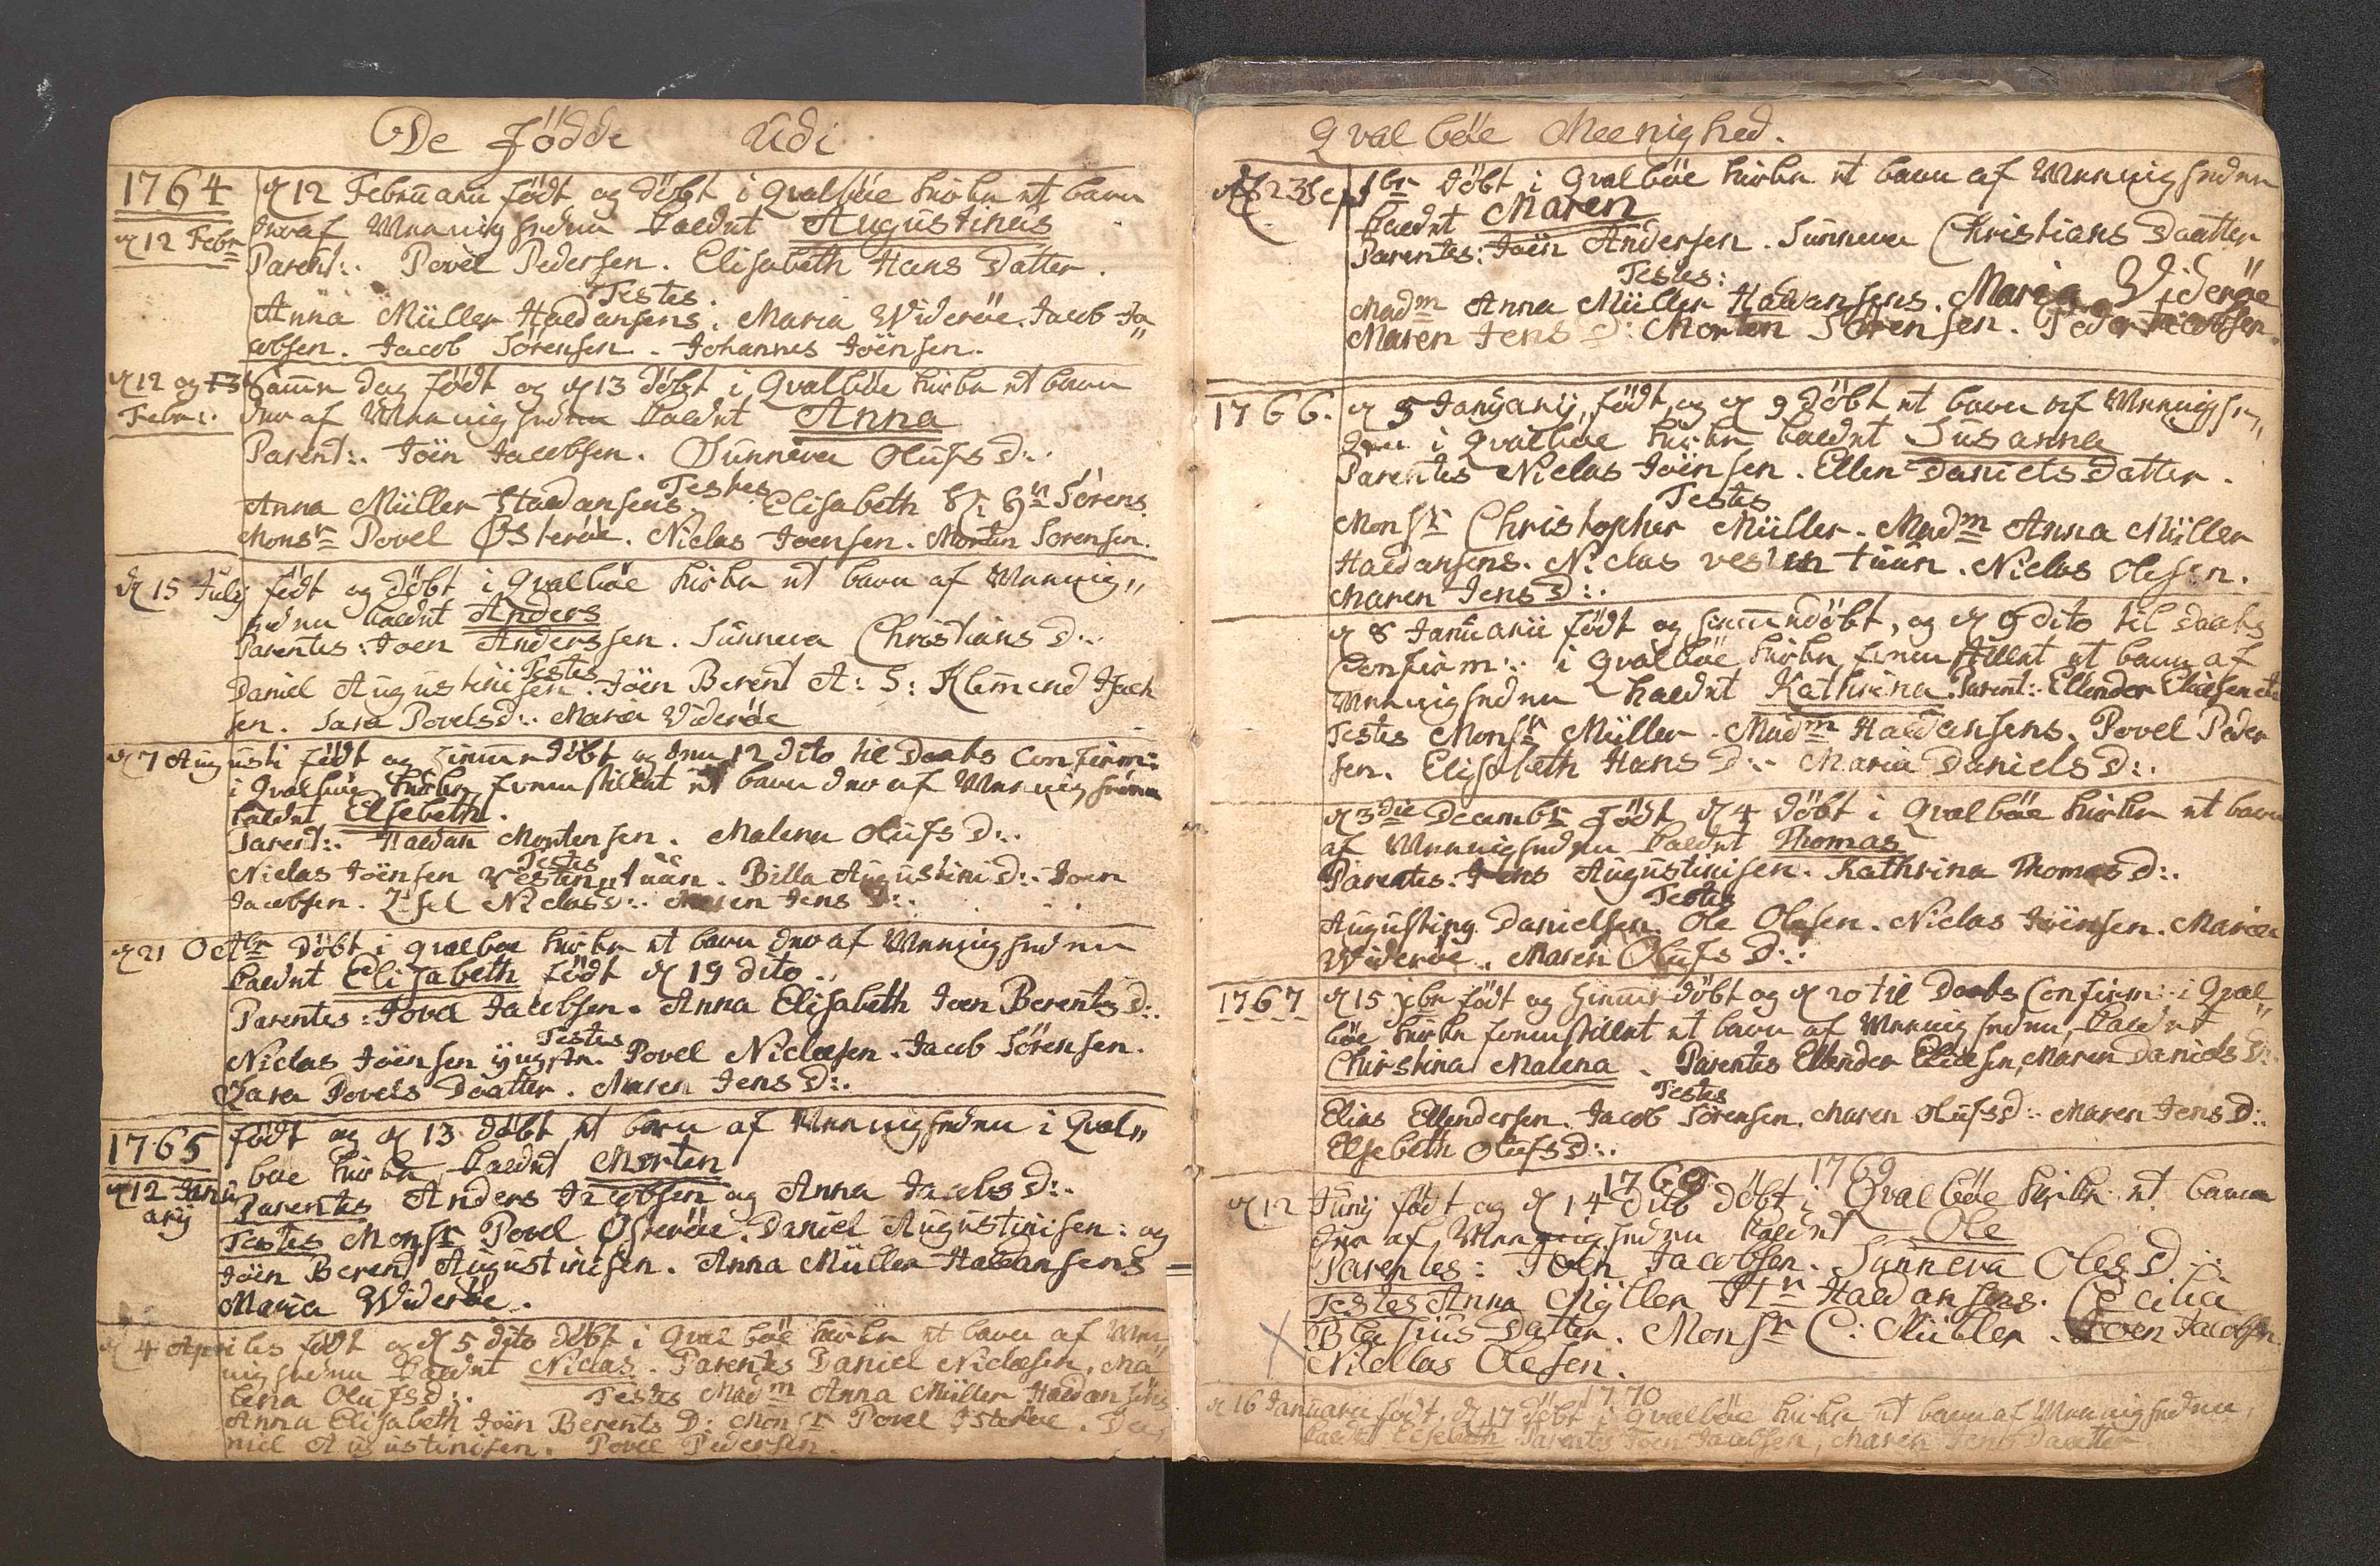 De födde Udi
1764
d 12 Februarii födt og döbt i Qvalböe kirke et barn
d 12 Febr
her af Menigheden kaldet Augustinus
Parent:. Povel Pedersen. Elisabeth Hans Datter.
Testes.
Anna Müller Haldansens. Maria Wideröe. Jacob Ja
cobsen. Jacob Sörensen. Johannes Joensen.
d 12 og 13
Febr:.
Samme dag födt og d 13 döbt i Qvalböe kirke et barn
her af Menigheden kaldet Anna
Parent:. Joen Jacobsen. Sunneva Olufs D:.
Testes
Anna Müller Haldansens. Elisabeth Sörens
Monsr Povel Österöe. Niclas Joensen. Morten Sorensen.
d 15 July födt og döbt i Qvalböe kirke et barn af Menig„
heden kaldet Anders
Parentes: Joen Anderssen. Sunneva Christians D:.
Testes
Daniel Augustinisen. Joen Berent A: S: Klemend Isach
sen. Sara Povelsd:. Maria Videröe
d 7 Augusti födt og hiemmedöbt og den 12 dito til Daabs Confirm:
i Qvalböe kirke fremstillet et barn her af Menigheden
kaldet Elsebeth.
Parent:. Haldan Mortensen. Malena Olufs D:.
Testes
Niclas Joensen Vesten„tuun. Billa Augustini D:. Joen
Jacobsen. Zisel Niclasd:. Maren Jens D:.
d 21 Octbr döbt i qvalboe kirke et barn her af Menigheden
kaldet Elisabeth födt d 19 dito.
Parentes: Povel Jacobsen. Anna Elisabeth Joen Berents D:.
Testes
Niclas Joensen yngstr. Povel Niclasen. Jacob Sörensen.
Zara Povels Daatter. Maren Jens D:.
1765
födt og d 13 döbt et barn af Menigheden i Qval„
boe kirke kaldet Morten
d 12 Janu
arij
Parentes Anders Jacobsen og Anna Jacobs D:.
Testes Monsr Povel Österöe. Daniel Augustinisen: og
Joen Berent Augustinisen. Anna Müller Haldansens
Maria Wideröe.
d 4 Aprilis födt og d 5 dito döbt i Qvalböe kirke et barn af Me
nigheden kaldet Niclas. Parentes Daniel Niclasen, Ma
lena Olufsd:. Testes Madm Anna Müller Haldansens
Anna Elisabeth Joen Berents D: Monsr Povel Österöe. Da„
niel Augustinisen. Povel Pedersen.
Qvalböe Meenighed.
d 23 Septbr döbt i Qvalböe kirke et barn af Menigheden
kaldet Maren
Parentes: Joen Andersen. Sunneva Christians Daatter
Testes:
Madm Anna Müller Haldansens. Maria Videröe
Maren Jens D: Morten Sörensen. Peder Jacobsen.
1766. d 5 Januarij födt og d 9 döbt et barn af Menighe„
den i Qvalböe kirke kaldet Susanna
Parentes Niclas Joensen. Ellen Daniels Datter.
Testes
Monsr Christopher Müller. Madm Anna Müller
Haldansens. Niclas vesten tuun. Niclas Olesen.
Maren Jens D:.
d 8 Januarii födt og hiemmedöbt, og d 9 dito til daabs
Confirm:. i Qvalböe kirke fremstillet et barn af
Menigheden kaldet Kathrina. Parent:. Ellender Eliesen etc
Testes Monsr Müller. Madm Haldansens. Povel Peder
sen. Elisabeth Hans D:. Maria Daniels D:.
d 3die Decembr födt d 4 döbt i Qvalböe kirke et barn
af Menigheden kaldet Thomas
Parentes: Jens Augustinisen. Kathrina Thomas D:.
Testes
Augusting Danielsen. Ole Olesen. Niclas Joensen. Maria
Wideröe. Maren Olufs D:.
1767 d 15 xbr födt og hiemmedöbt og d 20 til Daabs Confirm:. i Qval„
böe kirke fremstillet et barn af Menigheden, kaldet
Christina Malena. Parentes Ellender Eliesen, Maren Daniels D:.
Testes
Elias Ellendersen. Jacob Sörensen. Maren Olufsd:. Maren Jens D:.
Elsebeth Olufs D:.
1769 1769
d 12 Junij födt og d 14 dito döbt i Qvalböe kirke et barn
her af Menigheden kaldet Ole
Parentes: Joen Jacobsen. Sunneva Oles D:.
Testes Anna Myller Hr Haldansens. Cecilia
Blasius Datter. Monsr C: Müller. Joen Jacobsen.
Nicllas Olesen.
1770
d 16 Januarii födt, d 17 döbt i qvalböe kirke et barn af Menigheden,
kaldet Elsebeth Parentes Joen Jacobsen, Maren Jens Daatter